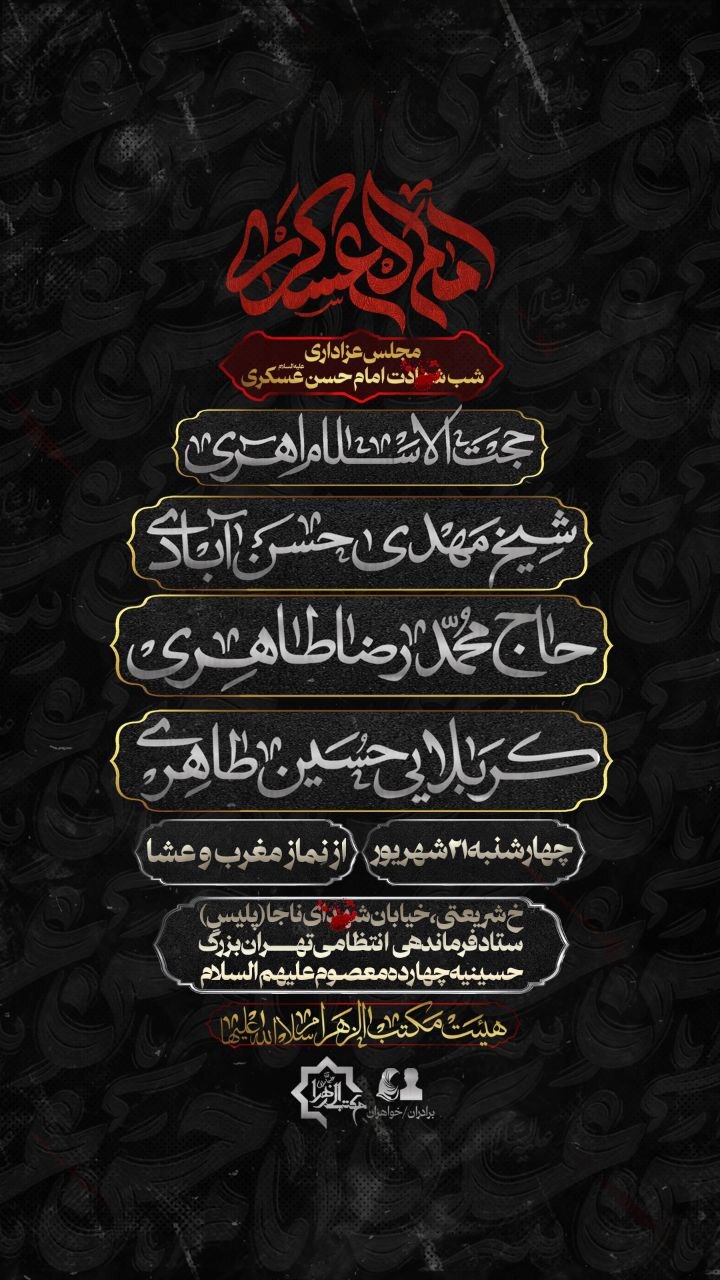 امام العسکری
مجلس عزاداری
شب شهادت امام حسن عسکری علیه السلام
حجت الاسلام اهری
شیخ مهدی حسن آبادی
حاج محمد رضا طاهری
کربلایی حسین طاهری
چهارشنبه ۲۱ شهریور
از نماز مغرب و عشا
خ شریعتی، خیابان شهدای ناجا (پلیس)
ستاد فرماندهی انتظامی تهران بزرگ
حسینیه چهارده معصوم علیهم السلام
هیئت مکتب الزهرا سلام الله علیها
مکتب الزهرا
برادران/خواهران